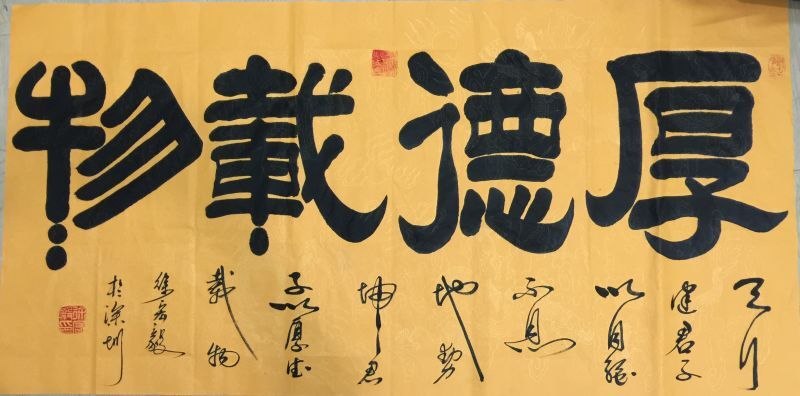 厚德載物
天行
健君子
以自强
不息
地势
坤君
子以厚德
載物
徐宏毅
於深圳